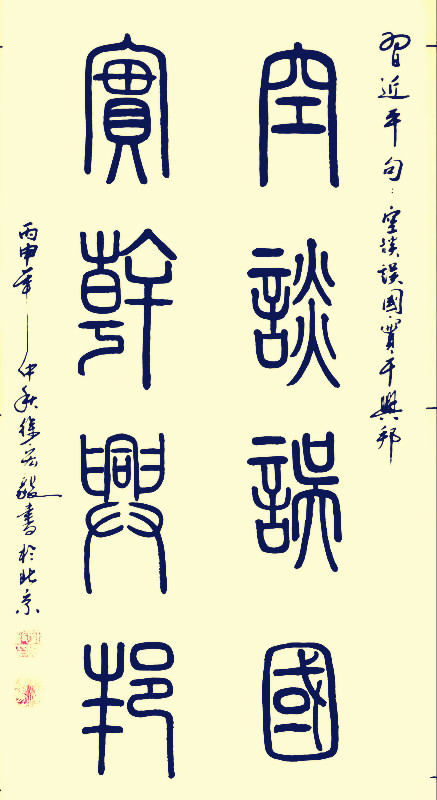 習近平句：空談誤國實干興邦
空談誤國
實幹興邦
丙申年仲秋徐宏毅書於北京